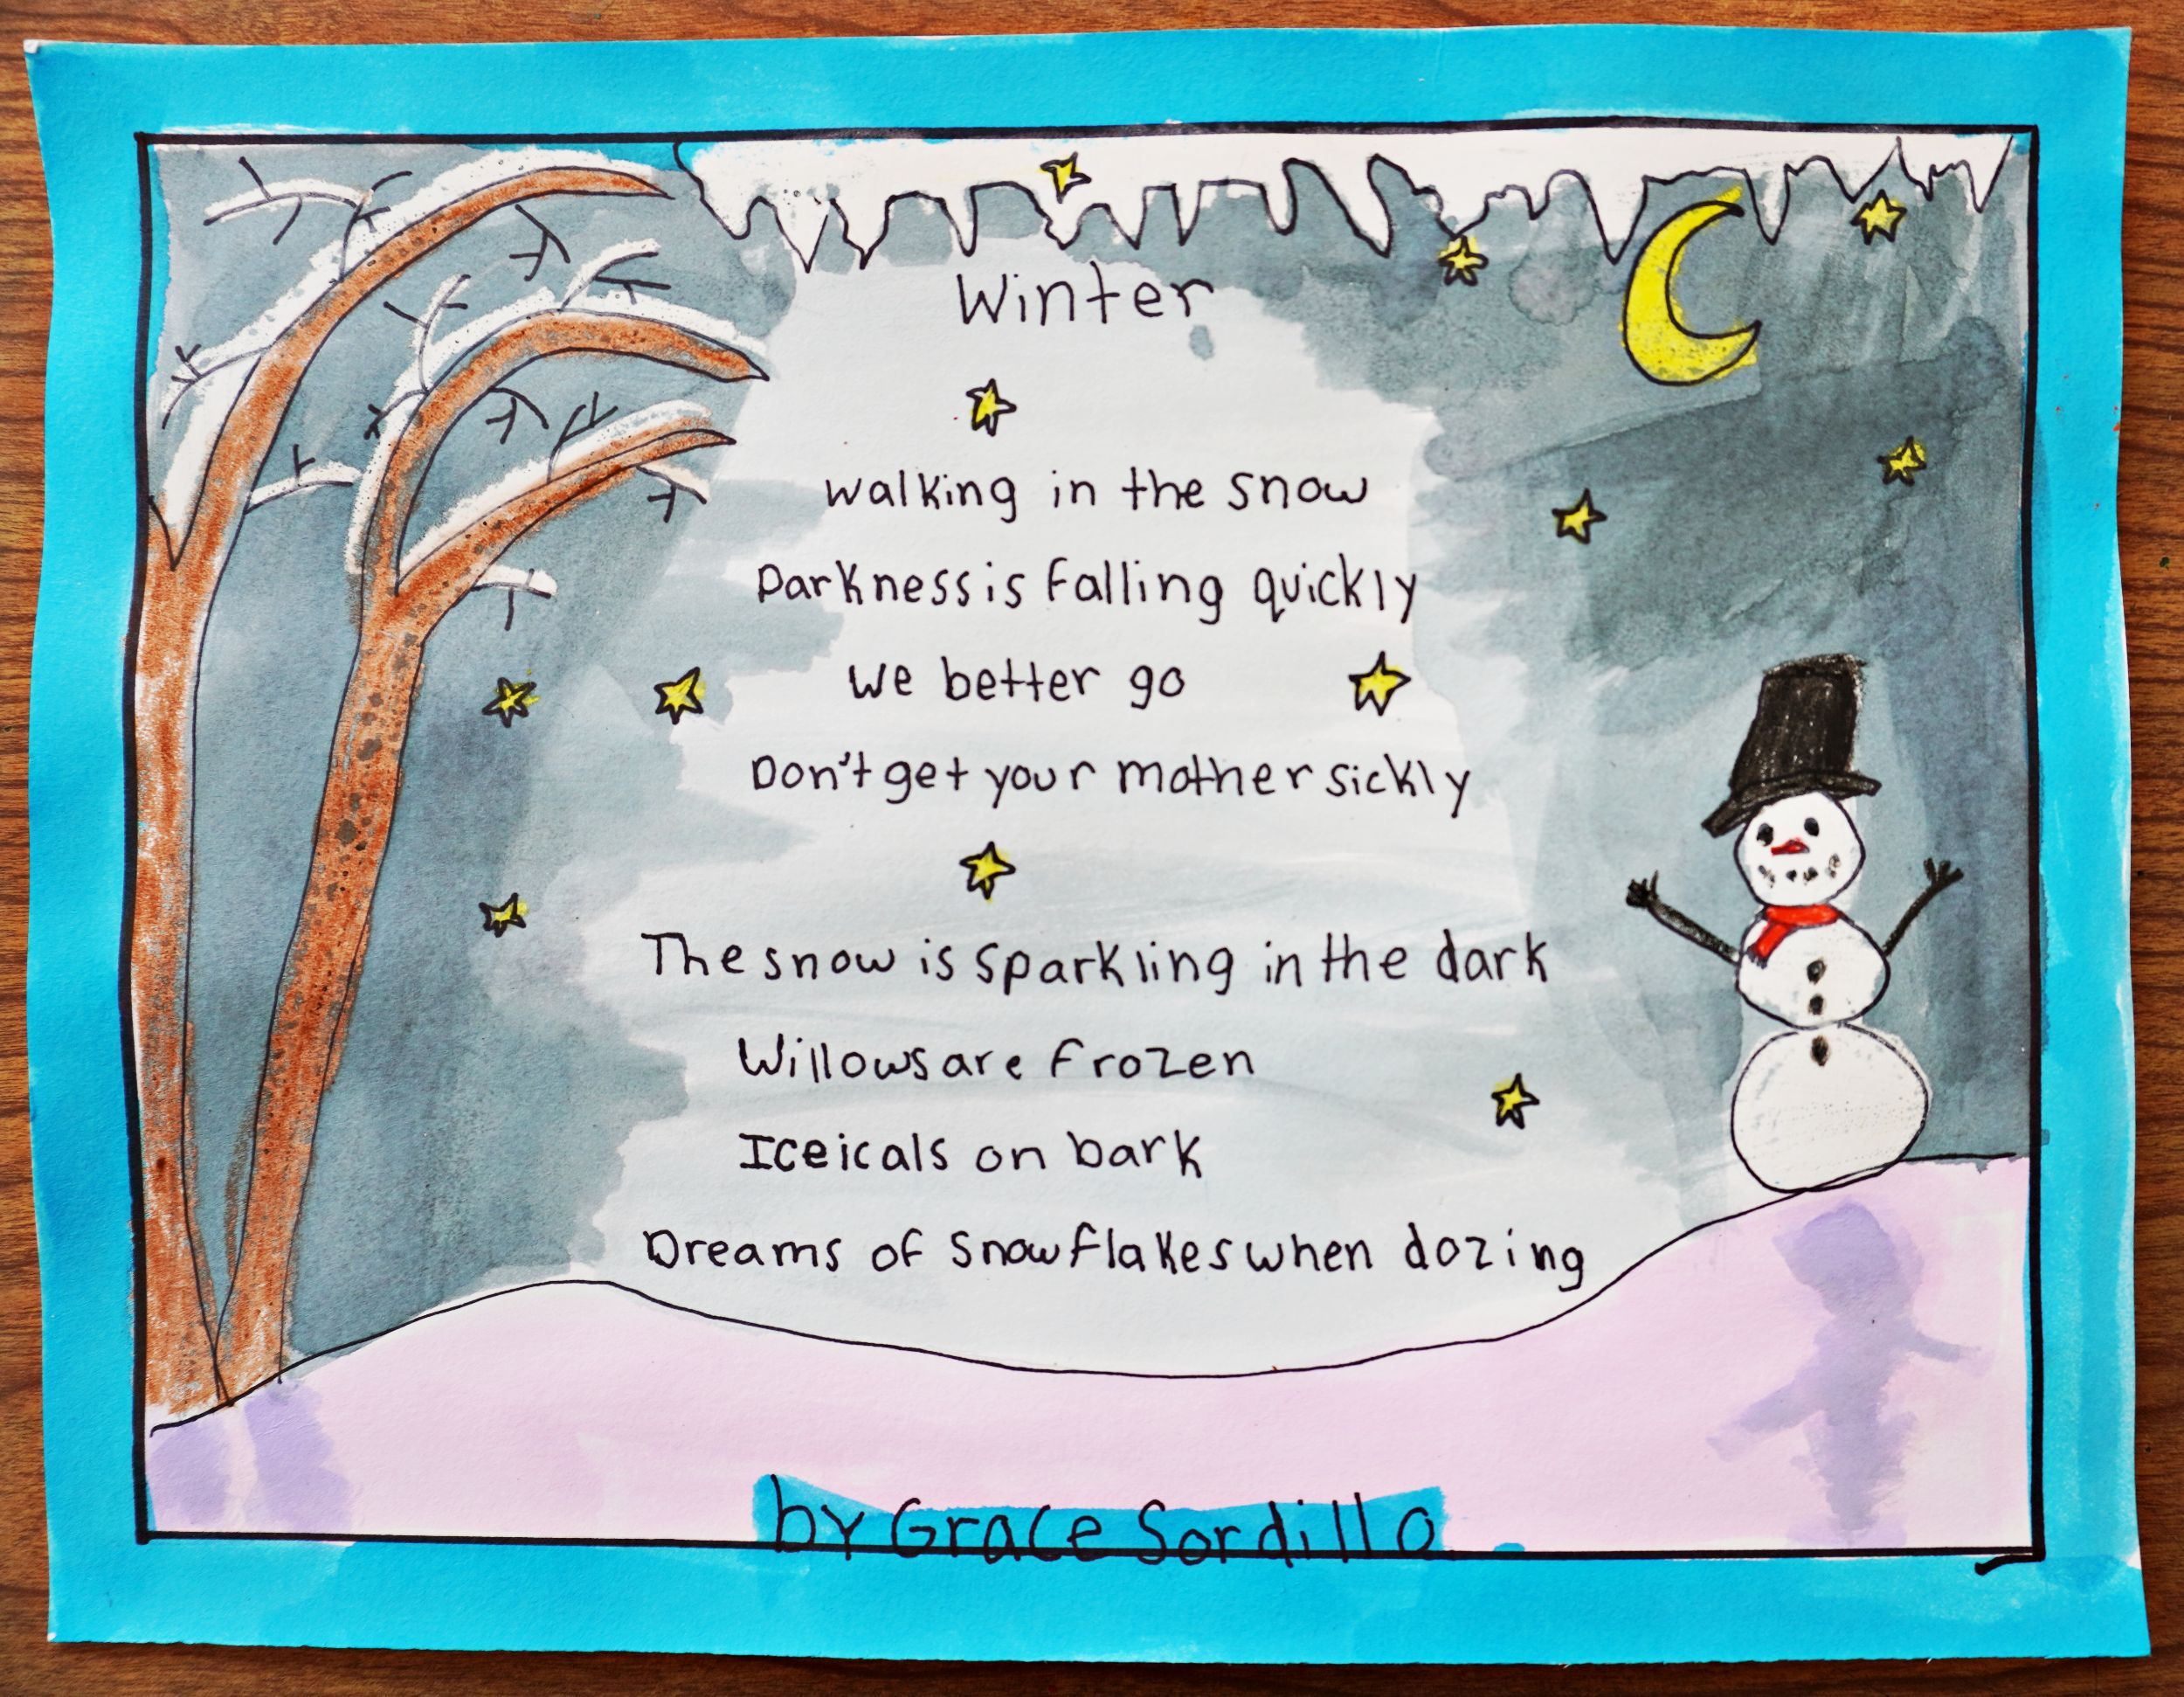 Winter
Walking in the snow
Darkness is falling quickly
We better go
Don't get your mother sickly
The snow is sparkling in the dark
Willows are frozen
Iceicals on bark
Dreams of snowflakes when dozing
by Grace Sordillo